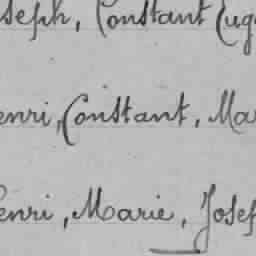 oseph, Constant Eug
enri, Constant, Mar
enri, Marie, Josef